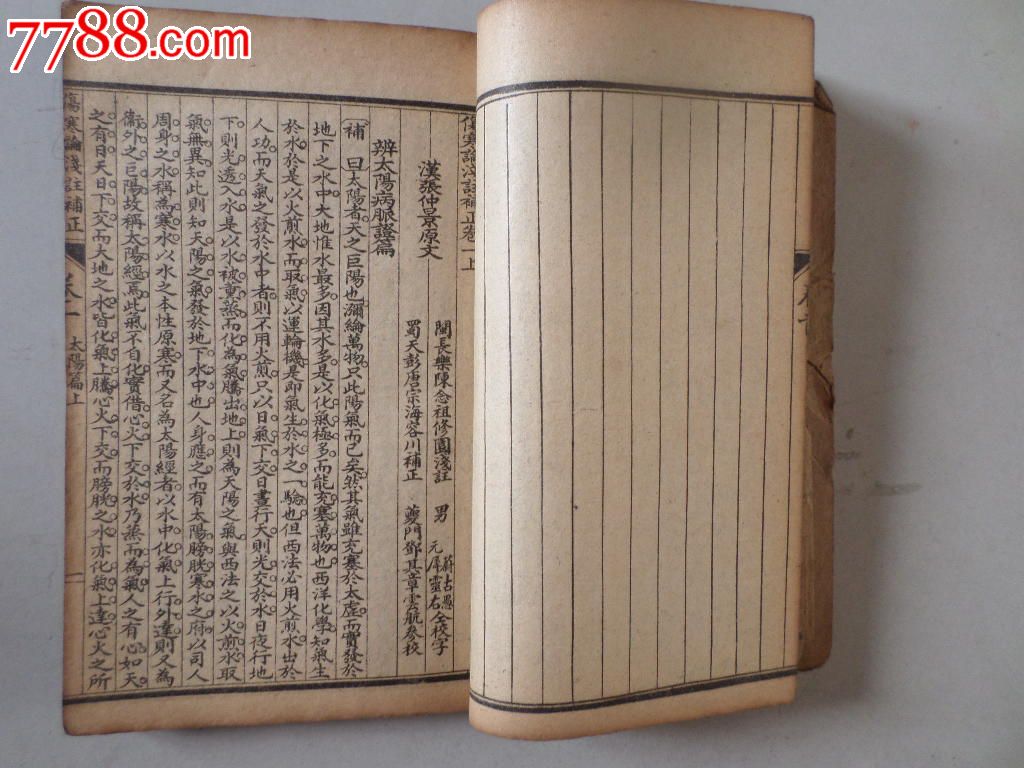 7788.com
傷寒論淺註補正卷一上
漢張仲景原文
閩長樂陳念祖修園淺註 男 蔚古愚 元犀靈石仝校字
蜀天彭唐宗海容川補正 夔門鄧其章雲航參校
辨太陽病脈證篇
補曰太陽者天之巨陽也瀰綸萬物只此陽氣而已矣然其氣雖充塞於太虛而實發於
地下之水中大地惟水最多因其水多是以化氣極多而能充塞萬物也西洋化學知氣生
於水於是以火煎水而取氣以運輪機是即氣生於水之一驗也但西法必用火煎水出於
人功而天氣之發於水中者則不用火煎只以日氣下交日晝行天則光交於水日夜行地
下則光透入水是以水被薫蒸而化為氣騰出地上則為天陽之氣與西法之以火煎水取
氣無異知此則知天陽之氣發於地下水中也人身應之而有太陽膀胱寒水之府以司人
周身之水稱為寒水以水之本性原寒而又名為太陽經者以水中化氣上行外達則又為
衛外之巨陽故稱太陽經焉此氣不自化實借心火下交於水乃蒸而為氣人之有心如天
之有日天日下交而大地之水皆化氣上騰心火下交而膀胱之水亦化氣上達心火之所
傷寒論淺註補正 卷一 太陽篇上 一